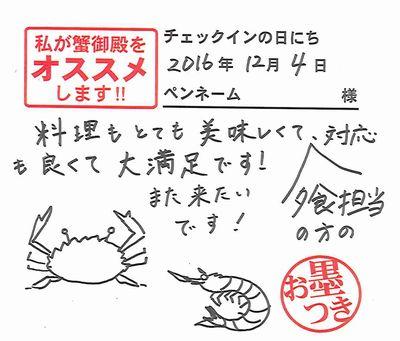 私が蟹御殿を
オススメ
します!!
チェックインの日にち
2016年 12月 4日
ペンネーム 様
料理もとても美味しくて、対応
も良くて大満足です!
夕食担当
の方の
また来たい
です!
お墨つき